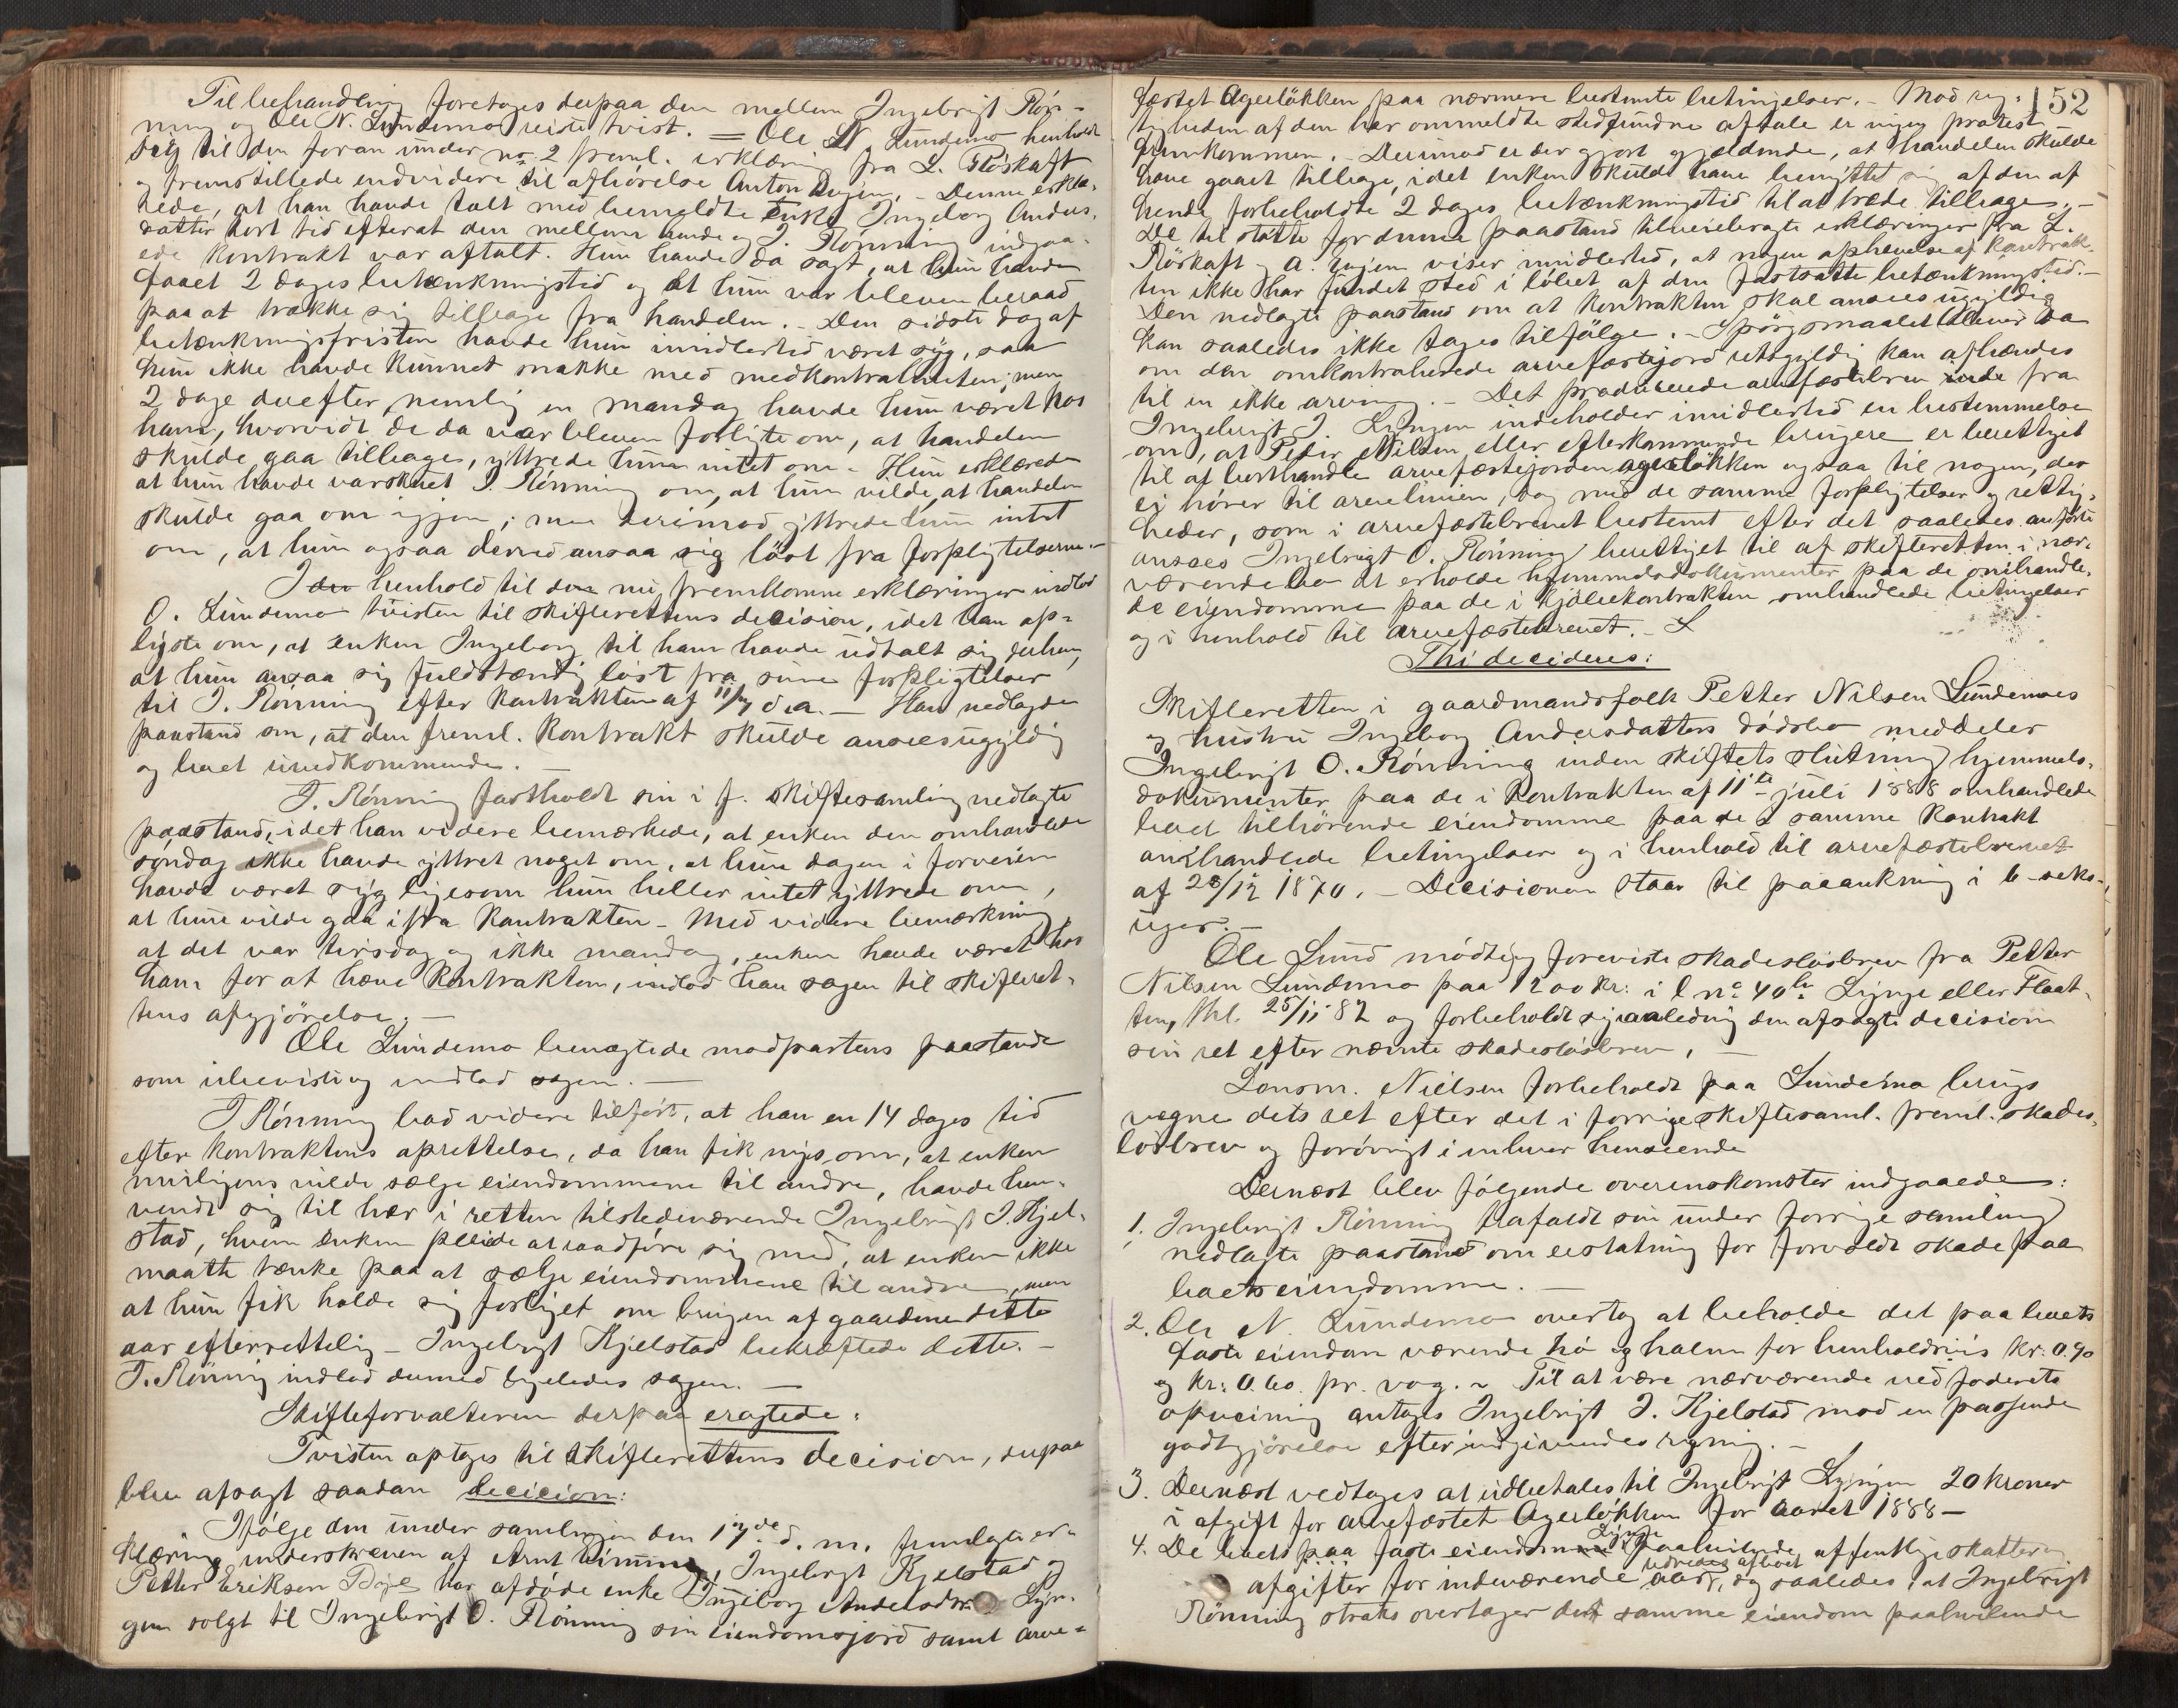 Til behandling foretoges derpaa den mellem Ingebrigt Røn-
ning og Ole N. Lundemo reiste tvist. = Ole N. Lundemo henholdt
sig til den foran under no 2 freml. erklæring fra L. Røskaft
og fremstillede endvidere til afhørelse Anton Dojen. - Denne erklæ-
rede, at han havde talt med bemeldte enke Ingeborg Anders-
datter kort tid efterat den mellem hende og I. Rønning indgaa-
ede kontrakt var aftalt. Hun havde da sagt, at hun havde
faaet 2 dages betænkningstid og at hun var bleven beraad
paa at trække sig tilbage fra handelen. - Den sidste dag af
betænkningsfristen havde hun imidlertid været syg, saa
hun ikke havde kunnet snakke med medkontrahenten; men
2 dage derefter, nemlig en mandag havde hun været hos
ham, hvorvidt de da var bleven forligte om, at handelen
skulde gaa tilbage, yttrede hun intet om. Hun erklærede
at hun havde varskuet I. Rønning om, at hun vilde, at handelen
skulde gaa om igjen; men derimod yttrede hun intet
om, at hun ogsaa derved ansaa sig løst fra forpligtelserne. -
I den henhold til den nu fremkomne erklæringer indlod
O. Lundemo tvisten til skifterettens decision, idet han op-
lyste om, at enken Ingeborg til ham havde udtalt sig derhen,
at hun ansaa sig fuldstændig løst fra sine forpligtelser
til I. Rønning efter kontrakten af 11/7 d. a. - Han nedlagde
paastand om, at den freml. kontrakt skulde ansees ugyldig
og boet uvedkommende. -
I. Rønning fastholdt sin i f. skiftesamling nedlagte
paastand, idet han videre bemærkede, at enken den omhandlede
søndag ikke havde yttret noget om, at hun dagen i forveien
havde været syg ligesom hun heller intet yttrede om,
at hun vilde gaa ifra kontrakten - Med videre bemærkning
at det var tirsdag og ikke mandag, enken havde været hos
ham for at hæve kontrakten, indlod han sagen til skifteret-
tens afgjørelse. -
Ole Lundemo benegtede modpartens paastande
som ubevist og indlod sagen. -
I Rønning bad videre tilført, at han en 14 dages tid
efter kontraktens oprettelse, da han fik nys om, at enken
muligens vilde sælge eiendommene til andre, havde hen-
vendt sig til her i retten tilstedeværende Ingebrigt I. Kjel-
stad, hvem enken pleide at raadføre sig med, at enken ikke
maatte tænke paa at sælge eiendommene til andre, men
at hun fik holde sig forliget om brugen af gaardene dette
aar efterrettelig - Ingebrigt Kjelstad bekræftede dette. -
I. Rønning indlod dermed ligeledes sagen. -
Skifteforvalteren derpaa eragtede:
Tvisten optages til skifterettens decision, derpaa
blev afsagt saadan decision:
Ifølge den under samlingen den 17de d. m. fremlagte er-
klæring underskreven af Arnt Wimme, Ingebrigt Kjelstad og
Petter Eriksen har afdøde enke Ingeborg Andersdtr Lyn-
gen solgt til Ingebrigt O. Rønning sin eiendomsjord samt arve-
152
fæstet Agerløkken paa nærmere bestemte betingelser. - Mod rig-
tigheden af den her ommeldte stedfundne aftale er ingen protest
fremkommen. - Derimod er der gjort gjældende, at handelen skulde
have gaaet tilbage, idet enken skulde have benyttet sig af den af
hende forbeholdte 2 dages betænkningstid til at træde tilbage. -
De til støtte for denne paastand tilveiebragte erklæringer fra L.
Røskaft og A. Dojen viser imidlertid, at nogen ophævelse af kontrak-
ten ikke har fundet sted i løbet af den fastsatte betænkningstid. -
Den nedlagte paastand om at kontrakten skal ansees ugyldig
kan saaledes ikke tages tilfølge. - Spørgsmaalet bliver da
om den omkontraherede arvefæstejord retsgyldig kan afhændes
til en ikke arving. - Det producerede arvefæstebrev fra
Ingebrigt I. Lyngen indeholder imidlertid en bestemmelse
om, at Peter Nilsen eller efterkommende brugere er berettiget
til at borthandle arvefæstejorden agerløkken ogsaa til nogen, der
ei hører til arvelinien, dog med de samme forpligtelser og rettig-
heder, som i arvefæstebrevet bestemt efter det saaledes anførte
ansees Ingebrigt O. Rønning berettiget til af skifteretten i nær-
værende bo at erholde hjemmelsdokumenter paa de omhandle-
de eiendomme paa de i kjøbekontrakten omhandlede betingelser
og i henhold til arvefæstebrevet. -
Thi decideres:
Skifteretten i gaardmandsfolk Petter Nilsen Lundemoes
og hustru Ingeborg Andersdatters dødsbo meddeler
Ingebrigt O. Rønning inden skiftets slutning hjemmels-
dokumenter paa de i kontrakten af 11te juli 1888 omhandlede
boet tilhørende eiendomme paa de i samme kontrakt
omhandlede betingelser og i henhold til arvefæstebrevet
af 28/12 1870. - Decisionen staar til paaankning i 6 - seks -
uger. -
Ole Lund mødte og foreviste skadesløsbrev fra Petter
Nilsen Lundemo paa 1200 kr. i l no 40 Lynge eller Flaat-
ten, thl. 25/11 82 og forbeholdt sig i anledning den afsagte decision
sin ret efter nævnte skadesløsbrev. -
Lensm. Nielsen forbeholdt paa Lundemo brugs
vegne dets ret efter det i forrige skiftesaml. freml. skades-
løsbrev og forøvrigt i enhver henseende
Dernæst blev følgende overenskomster indgaaede:
1. Ingebrigt Rønning frafaldt sin under forrige samling
nedlagte paastand om erstatning for forvoldt skade paa
boets eiendomme. -
2. Ole N. Lundemo overtog at beholde det paa boets
faste eiendom værende hø og halm for henholdsvis kr. 0.90
og kr. 0.60. pr. vog. - Til at være nærværende ved foderets
opveining antages Ingebrigt I. Kjelstad mod en passende
godtgjørelse efter indgivendes regning. -
3. Dernæst vedtoges at udbetales til Ingebrigt Lyngen 20 kroner
i afgift for arvefæstet Agerløkken for aaret 1888 -
4. De boets paa faste eiendomme Lynge paahvilende offentlige skatter og
afgifter for indeværende aar udredes af boet, dog saaledes, at Ingebrigt
Rønning straks overtager den samme eiendom paahvilende